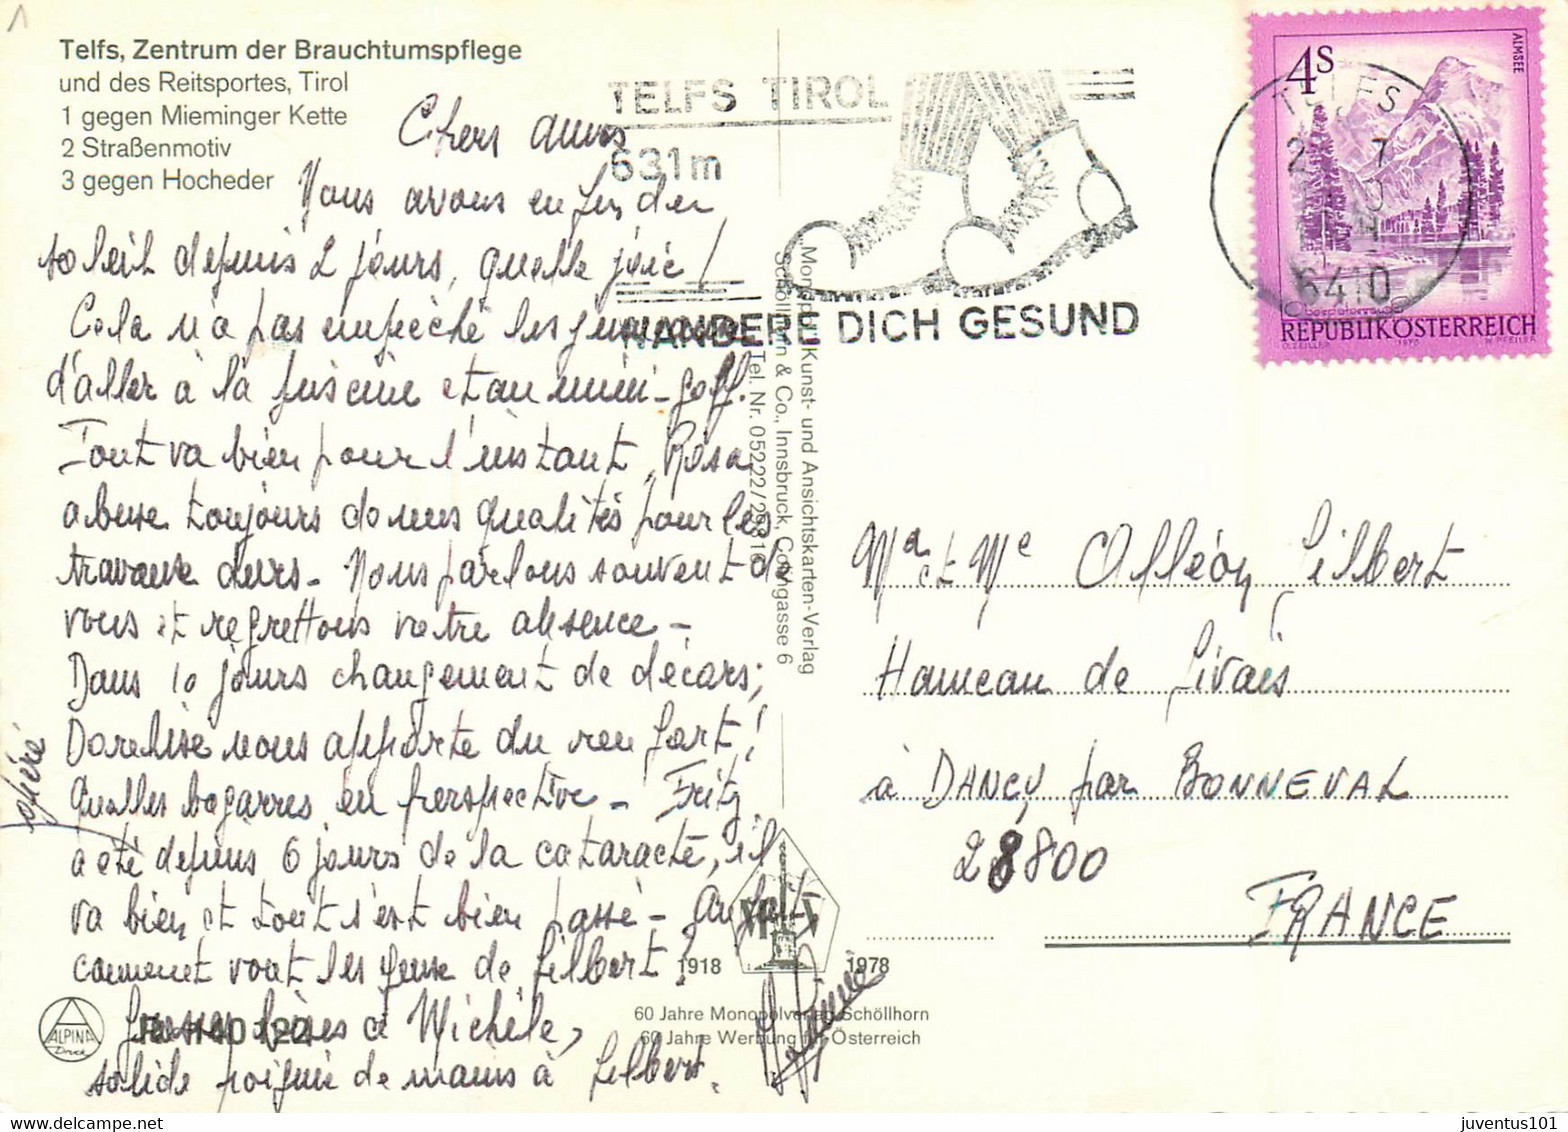 Telfs, Zentrum der Brauchtumspflege
und des Reitsportes, Tirol
1 gegen Mieminger Kette
2 Straßenmotiv
3 gegen Hocheder
TELFS TIROL
631m
WANDERE DICH GESUND
4s
ALMSEE
REPUBLIK ÖSTERREICH
TELFS
6410
Chers amis
Nous avons enfin du
soleil depuis 2 jours, quelle joie !
Cela n'a pas empêché les
d'aller à la piscine et au mini-golf.
Tout va bien pour l'instant, Rosa
abuse toujours de mes qualités pour les
travaux durs - Nous parlons souvent de
vous et regrettons votre absence -
Dans 10 jours changement de décors,
nous apporte du renfort !
Quelles bagarres en perspective - Fritz
opéré
a été depuis 6 jours de la cataracte, il
va bien et tout s'est bien passé - Au fait,
comment vont les yeux de Gilbert ?
Grosses bises à Michèle,
solide poignée de mains à Gilbert.
Monopol Kunst- und Ansichtskarten-Verlag
Schöllhorn & Co., Innsbruck, Colingasse 6
Tel. Nr. 05222/
1918
1978
60 Jahre Monopolverlag Schöllhorn
60 Jahre Werbung für Österreich
ALPINA
Druck
Ma et Me Alléon Gilbert
Hameau de Livais
à DANCY par BONNEVAL
28800
FRANCE
juventus101